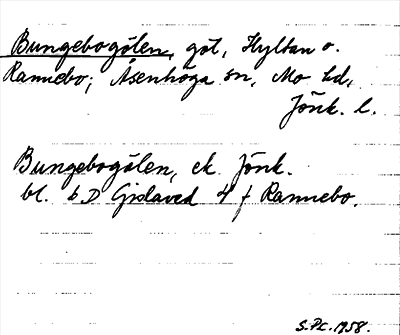 Bungebogölen, göl, Hyltan o.
Rannebo; Åsenhöga sn, Mo hd,
Jönk. l.
Bungebogölen, ek Jönk.
bl. 6 D Gislaved 4 f Rannebo.
S.Pc. 1958.